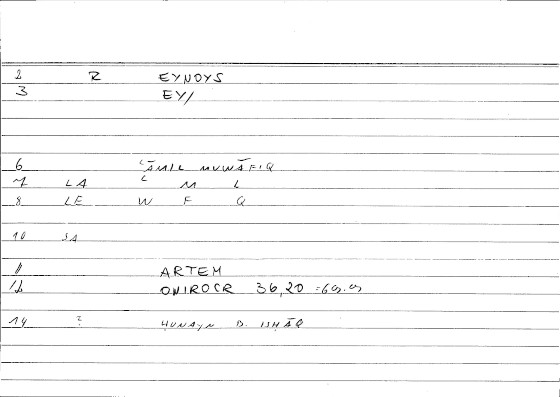 2 R EYNOYS
3 EY/
6 ʿĀMIL MUWĀFIQ
7 LA ʿ M L
8 LE W F Q
10 SA
11 ARTEM
12 ONIROCR 36,20 =69.09
14 ? ḤUNAYN B. ISḤĀQ